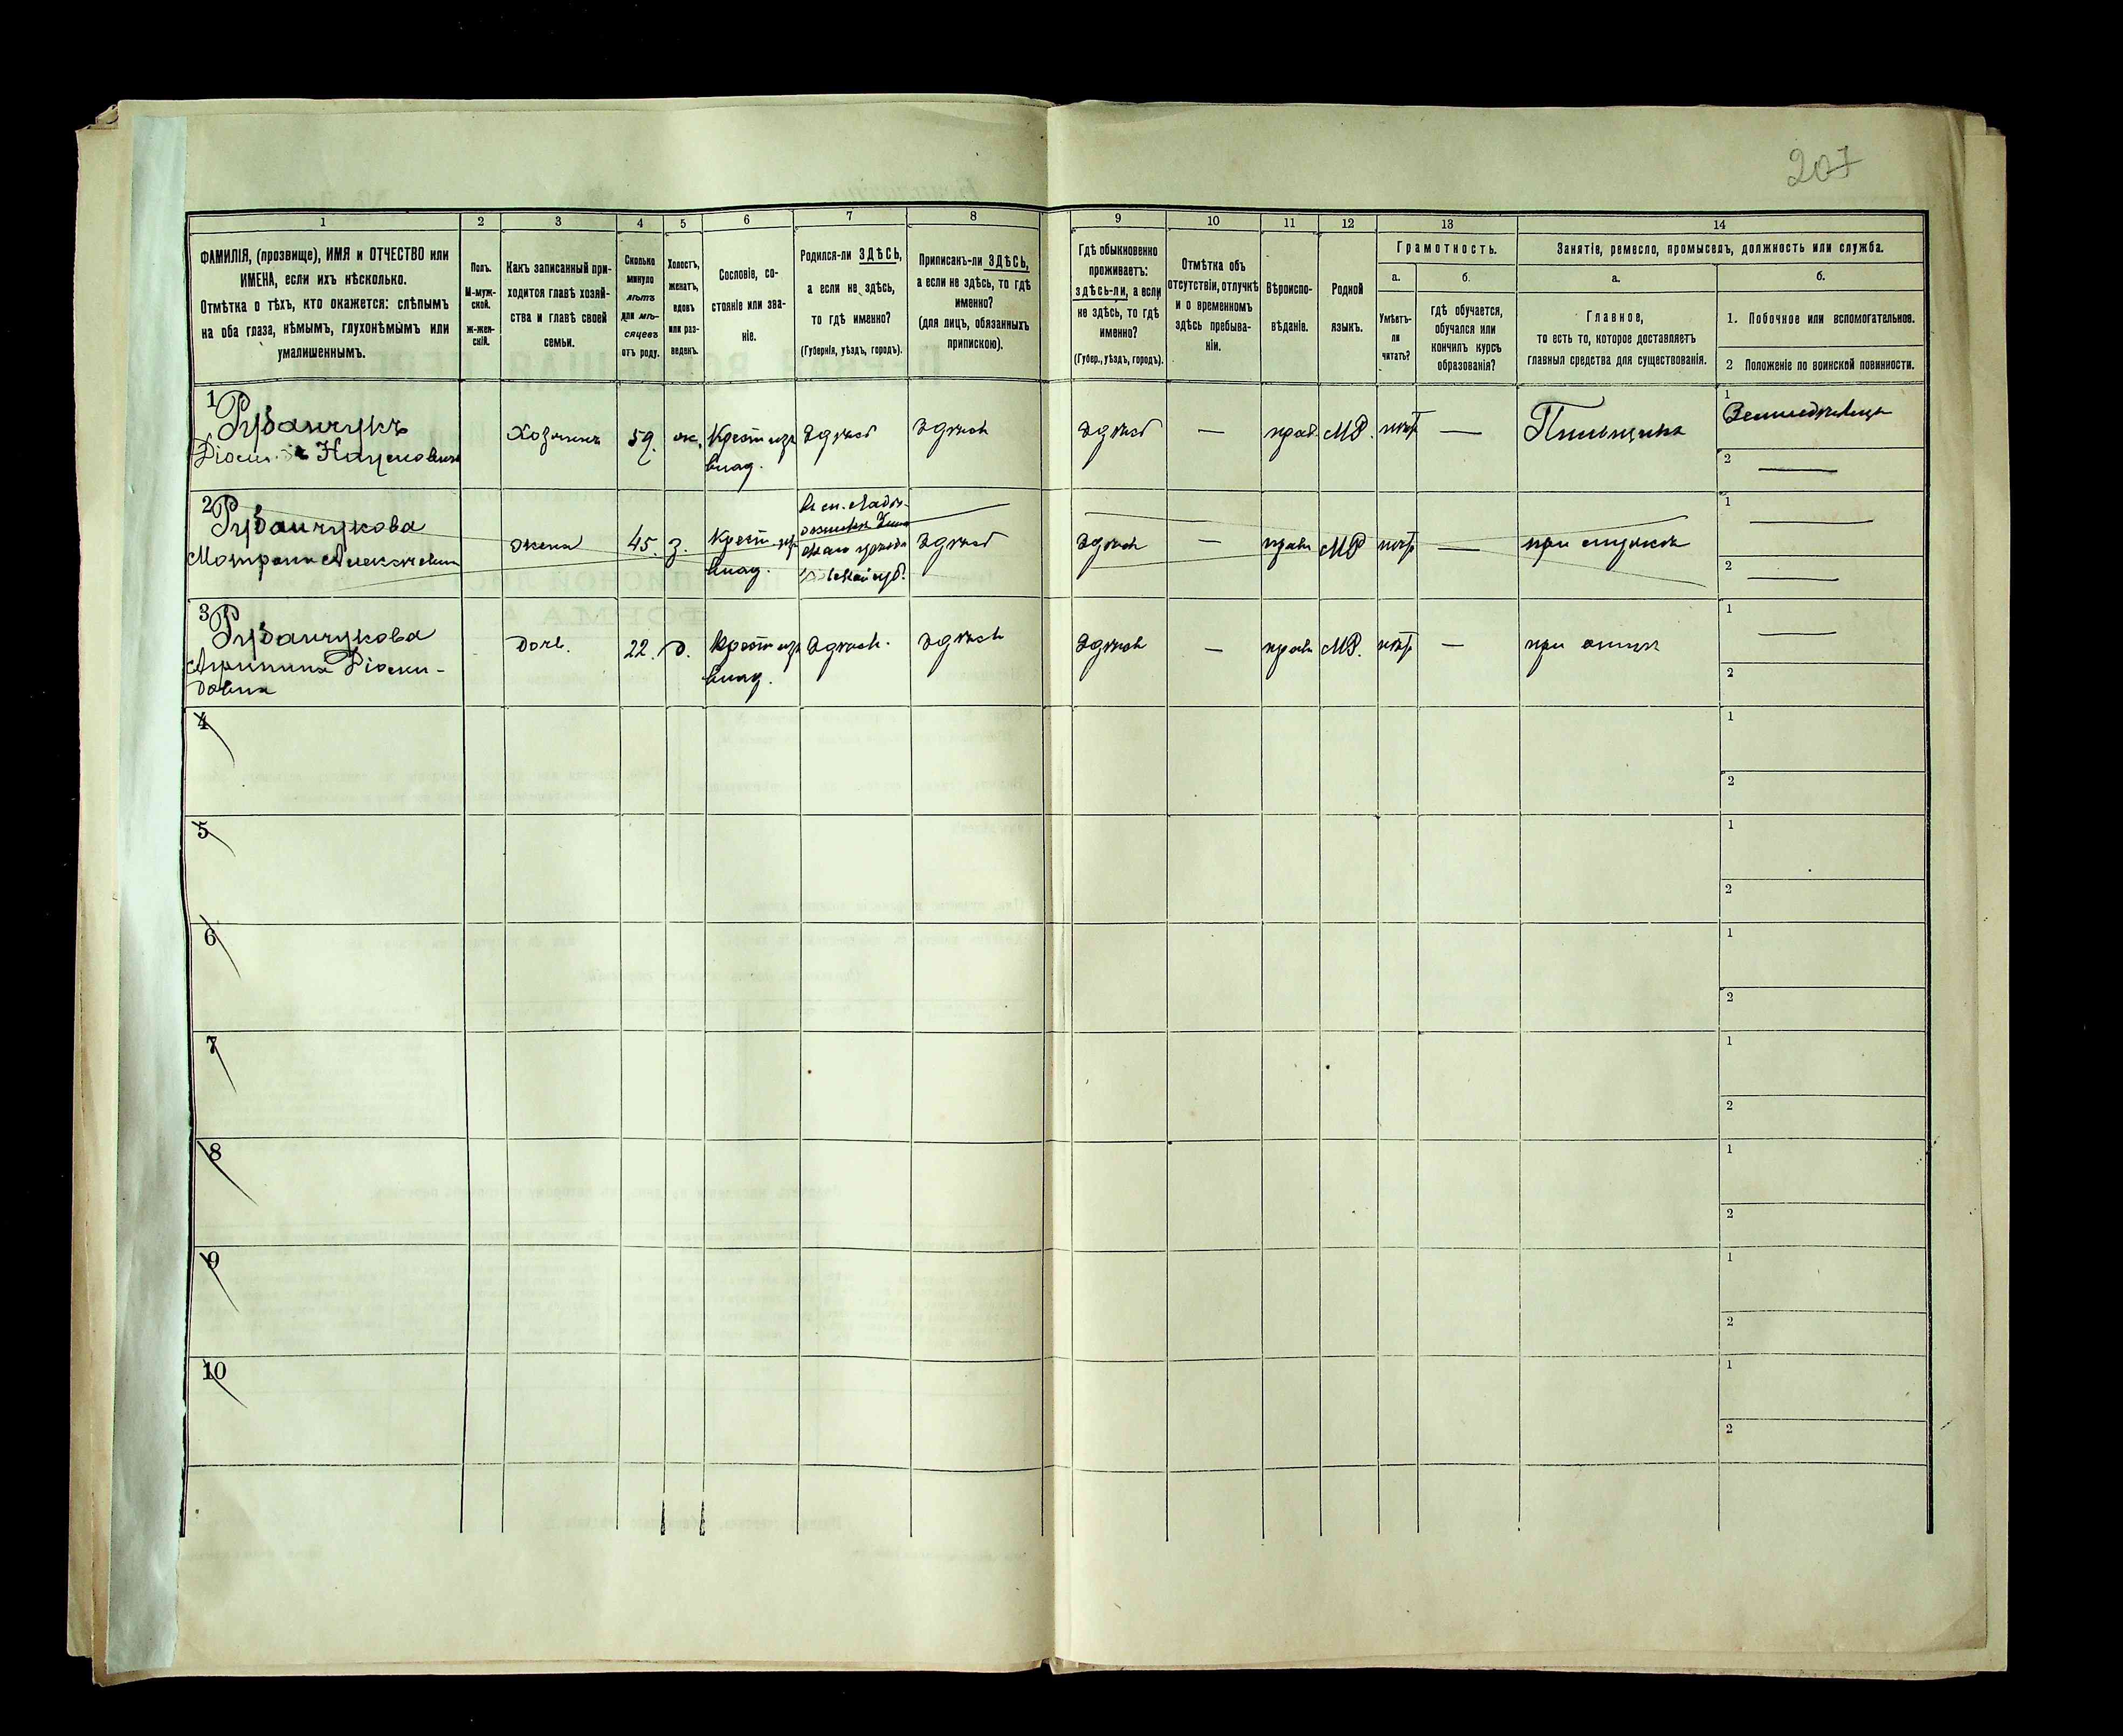 207
1 2 3 4 5 6 7 8 9 10 11 12 13 14
ФАМИЛІЯ, (прозвище), ИМЯ и ОТЧЕСТВО или
ИМЕНА, если ихъ нѣсколько.
Отмѣтка о тѣхъ, кто окажется: слѣпымъ
на оба глаза, нѣмымъ, глухонѣмымъ или
умалишеннымъ.
Полъ.
М-муж-
ской.
ж-жен-
скій.
Какъ записанный при-
ходится главѣ хозяй-
ства и главѣ своей
семьи.
Сколько
минуло
лѣтъ
или мѣ-
сяцевъ
отъ роду.
Холостъ,
женатъ,
вдовъ
или раз-
веденъ.
Сословіе, со-
стояніе или зва-
ніе.
Родился-ли ЗДѢСЬ,
а если не здѣсь,
то гдѣ именно?
(Губернія, уѣздъ, городъ).
Приписанъ-ли ЗДѢСЬ,
а если не здѣсь, то гдѣ
именно?
(для лицъ, обязанныхъ
припискою).
Гдѣ обыкновенно
проживаетъ:
здѣсь-ли, а если
не здѣсь, то гдѣ
именно?
(Губер., уѣздъ, городъ).
Отмѣтка объ
отсутствіи, отлучкѣ
и о временномъ
здѣсь пребыва-
ніи.
Вѣроиспо-
вѣданіе.
Родной
языкъ.
Грамотность.
а.
Умѣетъ-
ли
читать?
б.
гдѣ обучается,
обучался или
кончилъ курсъ
образованія?
Занятіе, ремесло, промыселъ, должность или служба.
а.
Главное,
то есть то, которое доставляетъ
главныя средства для существованія.
б.
1. Побочное или вспомогательное.
2 Положеніе по воинской повинности.
1
Рубанчукъ
Хозяинъ 59. ж. Крест. из
влад.
здѣсь здѣсь здѣсь — прав. МР. нѣт —
1
Земледѣлецъ
2 —
2
Рубанчукова
Мотрона Алексѣевна
жена 45. з. Крест. из
влад.
здѣсь здѣсь — прав МР нѣт — при мужѣ
1 —
2 —
3
Рубанчукова
дочь. 22. д. Крест из
влад.
здѣсь. здѣсь здѣсь — прав МР. нѣт — при отцѣ
1 —
2
4
1
2
5
1
2
6
1
2
7
1
2
8
1
2
9
1
2
10
1
2